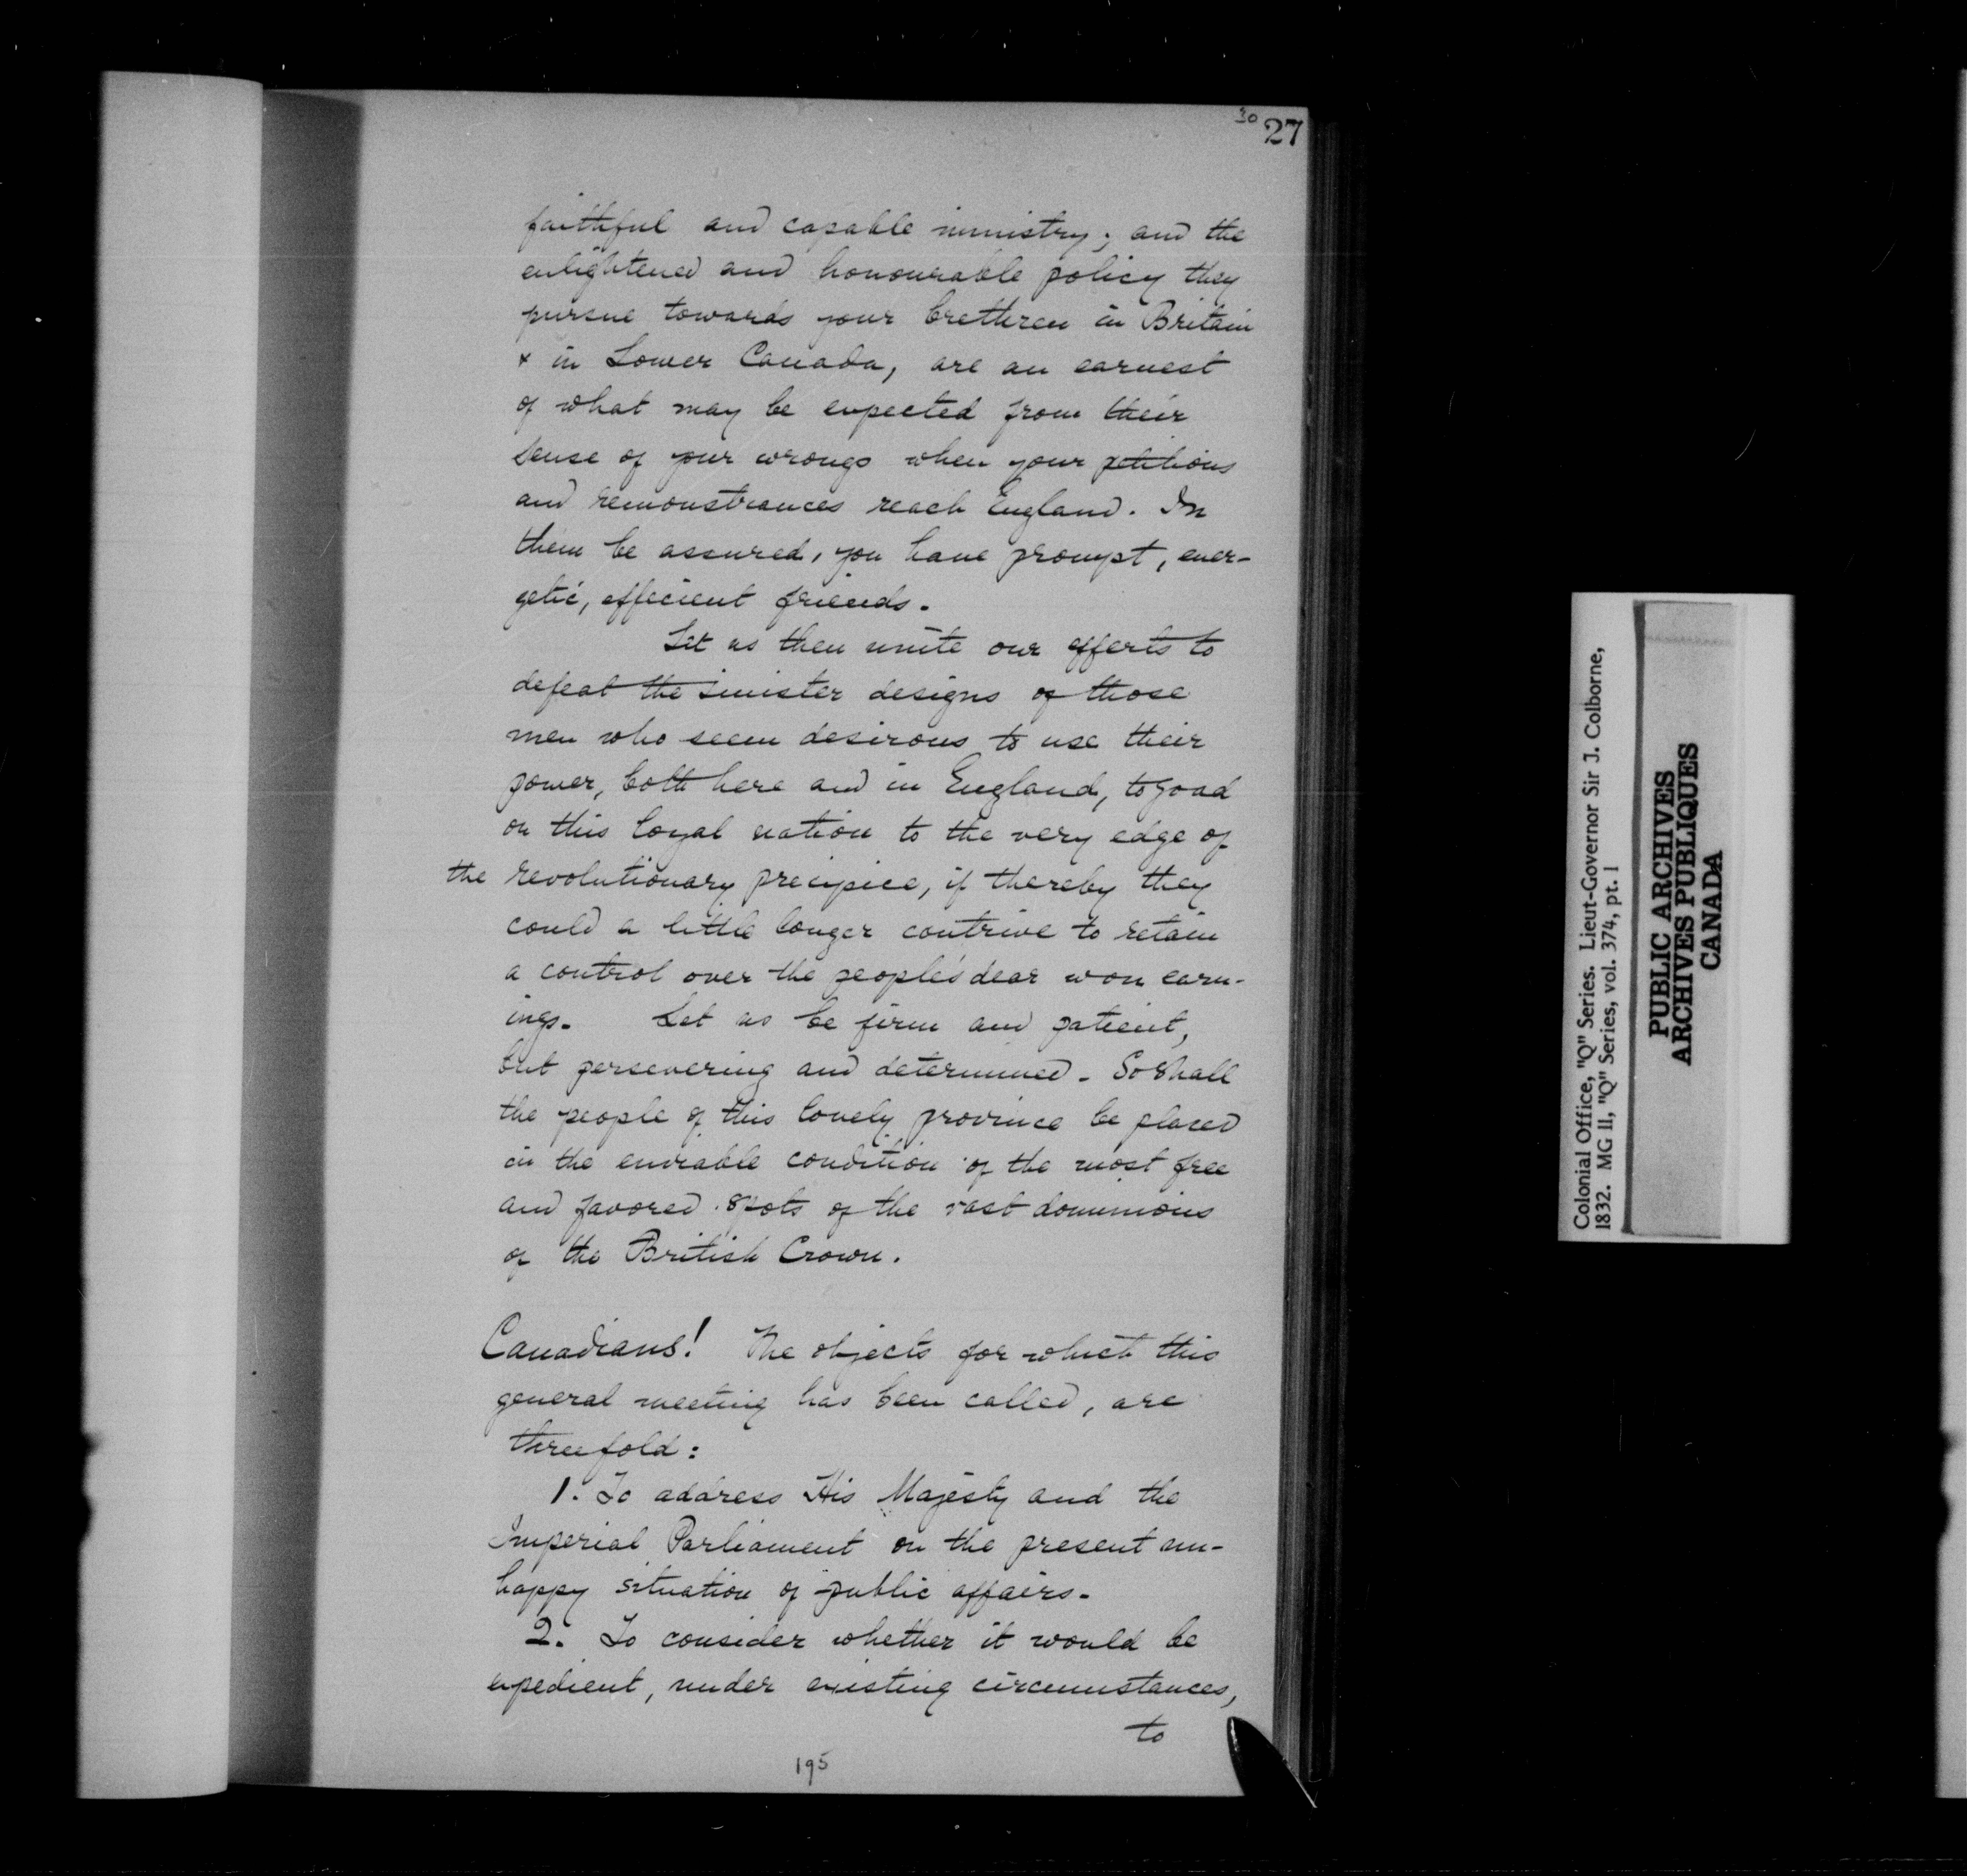 30
27
faithful and capable ministry; and the
enlightened and honourable policy they
pursue towards your brethren in Britain
& in Lower Canada, are an earnest
of what may be expected from their
sense of your wrongs when your petitions
and remonstrances reach England. In
them be assured, you have prompt, ener-
getic, efficient friends.
Let us then unite our efforts to
defeat the sinister designs of those
men who seem desirous to use their
power, both here and in England, to goad
on this loyal nation to the very edge of
the revolutionary precipice, if thereby they
could a little longer contrive to retain
a control over the people's dear won earn-
ings. Let us be firm and patient,
but persevering and determined. So shall
the people of this lovely province be placed
in the enviable condition of the most free
and favored spots of the vast dominions
of the British Crown.
Canadians! The objects for which this
general meeting has been called, are
threefold:
1. To address His Majesty and the
Imperial Parliament on the present un-
happy situation of public affairs.
2. To consider whether it would be
expedient, under existing circumstances,
to
195
Colonial Office, "Q" Series. Lieut-Governor Sir J. Colborne,
1832. MG 11, "Q" Series, vol. 374, pt. 1
PUBLIC ARCHIVES
ARCHIVES PUBLIQUES
CANADA